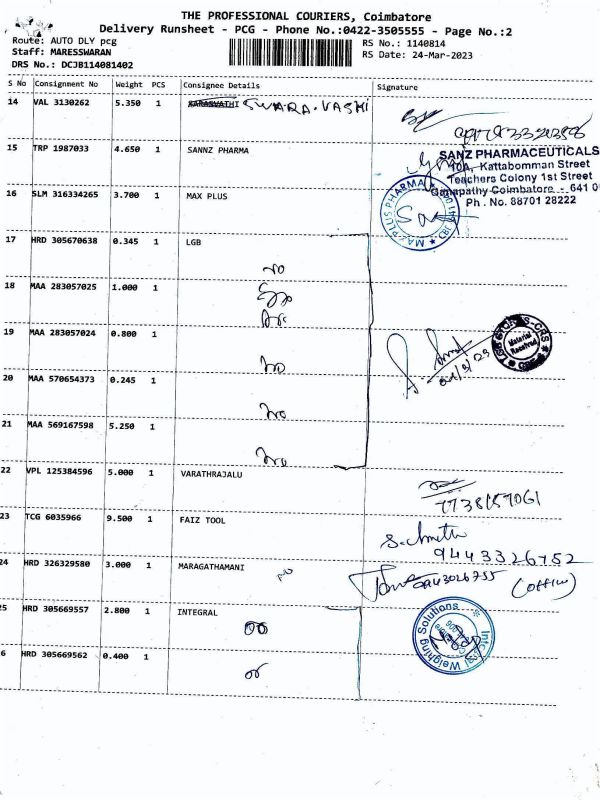 THE PROFESSIONAL COURIERS, Coimbatore
Delivery Runsheet - PCG - Phone No.:0422-3505555 - Page No.:2
Route: AUTO DLY pcg
Staff: MARESSWARAN
DRS No.: DCJB114081402
RS No.: 1140814
RS Date: 24-Mar-2023
S No Consignment No Weight PCS Consignee Details Signature
14 VAL 3130262 5.350 1 SARASWATHI SWARA.VASHI
15 TRP 1987033 4.650 1 SANNZ PHARMA
SANZ PHARMACEUTICALS
40A, Kattabomman Street
Teachers Colony 1st Street
Ganapathy Coimbatore - 641 0
Ph. No. 88701 28222
16 SLM 316334265 3.700 1 MAX PLUS
MAX PLUS PHARMA
17 HRD 305670638 0.345 1 LGB
18 MAA 283057025 1.000 1
19 MAA 283057024 0.800 1
Material Received
20 MAA 570654373 0.245 1
21 MAA 569167598 5.250 1
22 VPL 125384596 5.000 1 VARATHRAJALU
23 TCG 6035966 9.500 1 FAIZ TOOL
9443326752
24 HRD 326329580 3.000 1 MARAGATHAMANI
(office)
25 HRD 305669557 2.800 1 INTEGRAL
Integral Weighing Solutions
6 HRD 305669562 0.400 1